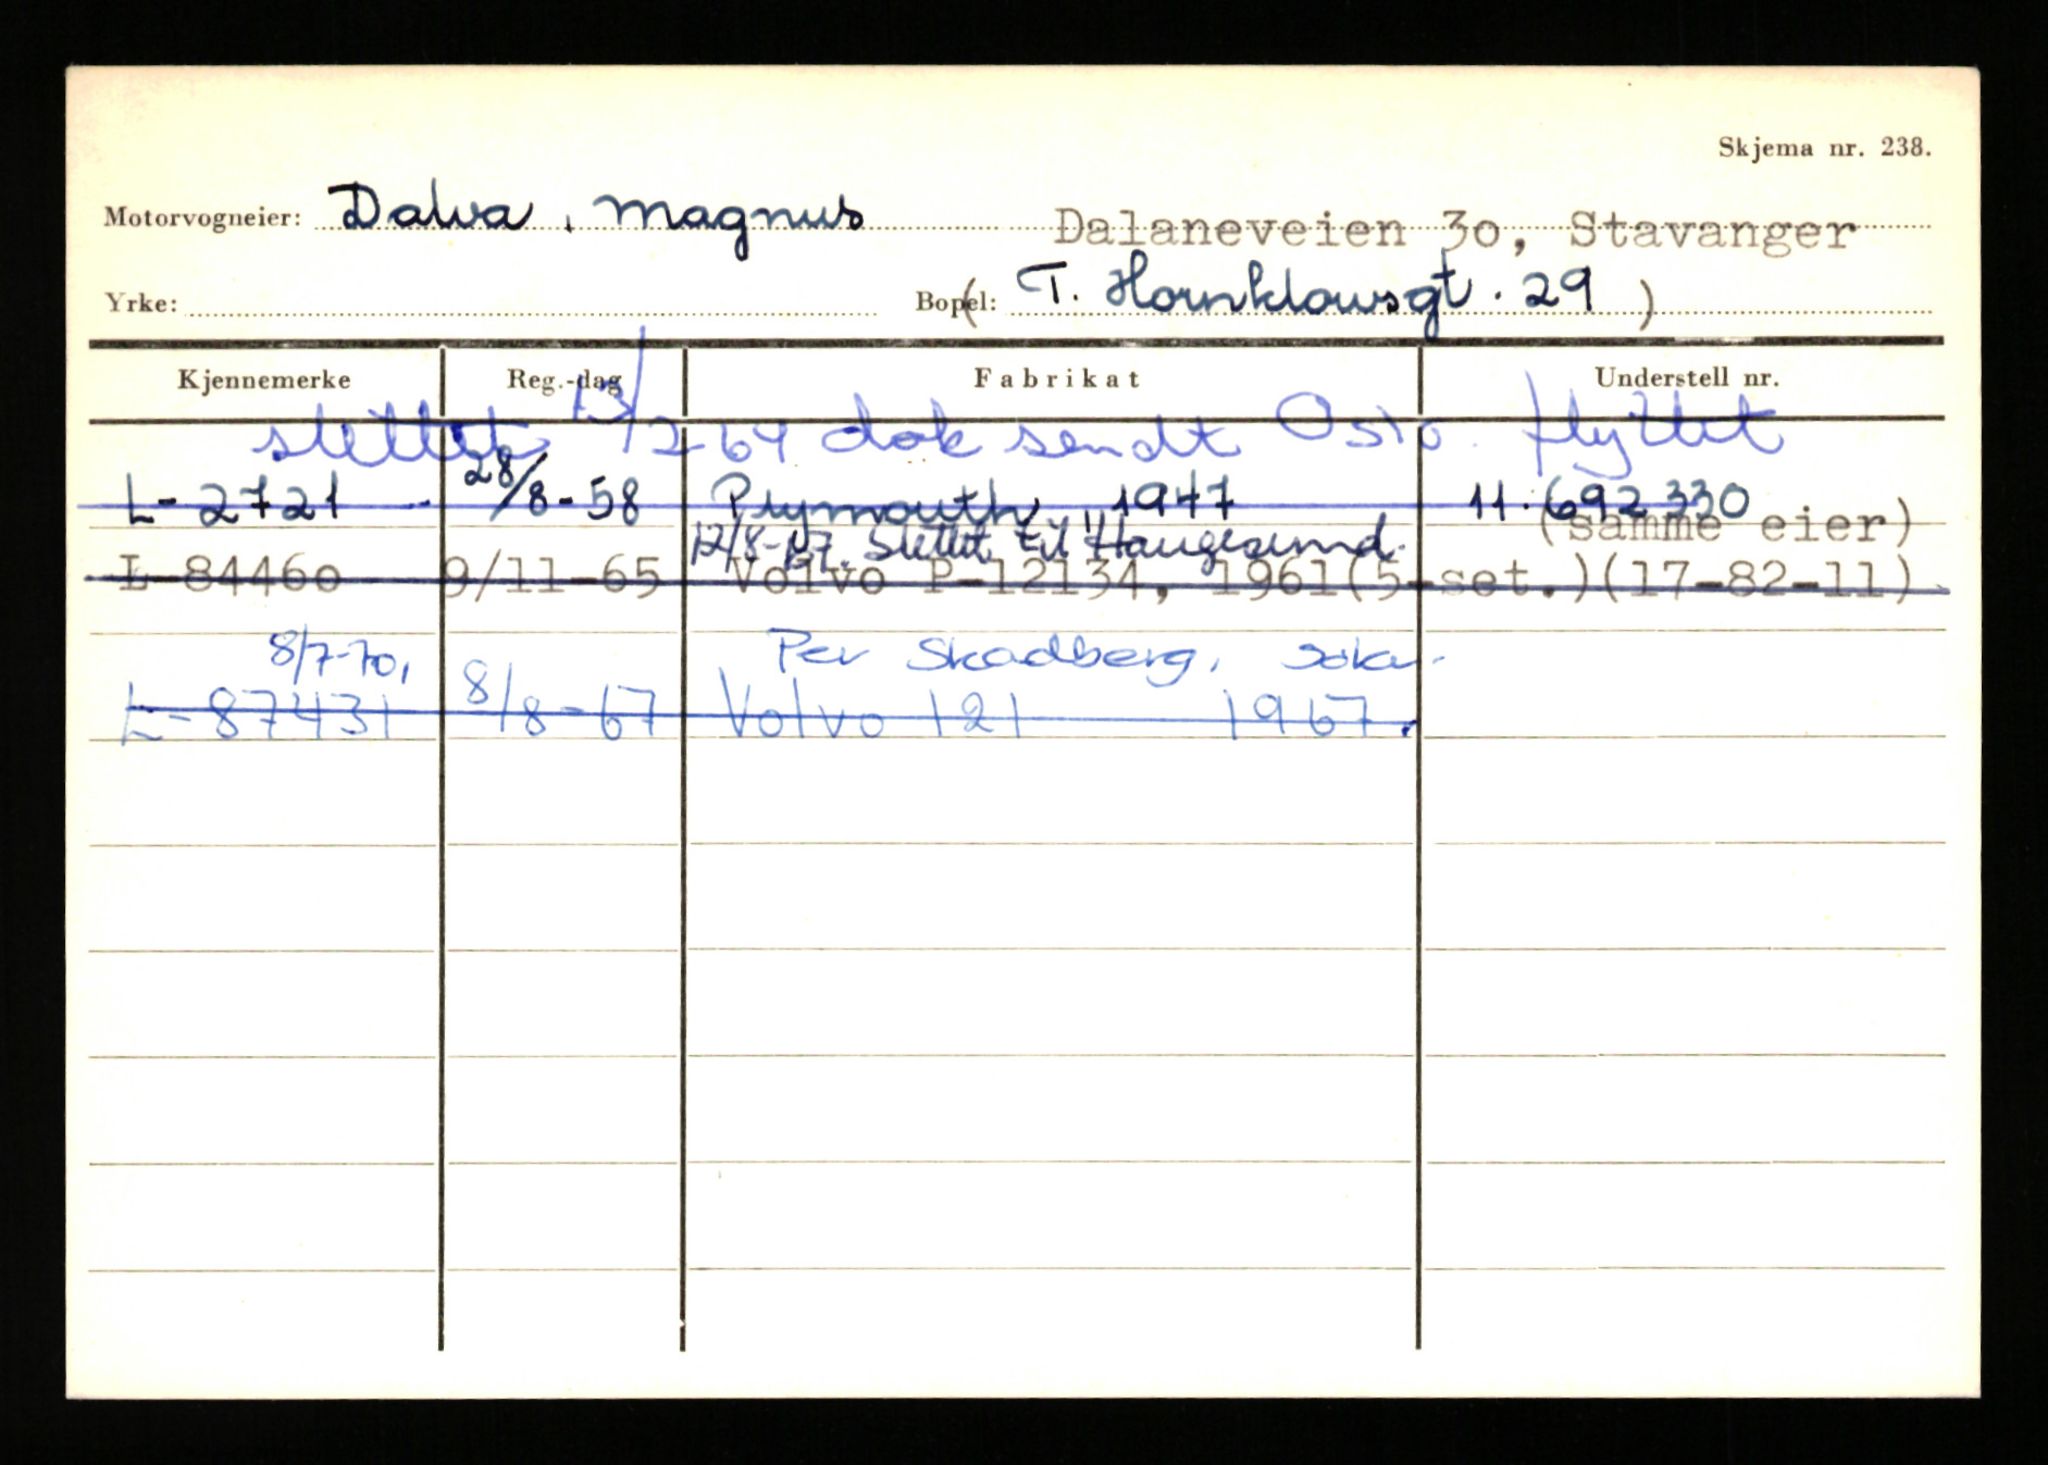 Skjema nr. 238.
Motorvogneier: Dalva, Magnus Dalaneveien 3o, Stavanger
Yrke: Bopel: ( T. Hornklowsgt. 29 )
Kjennemerke Reg.-dag Fabrikat Understell nr.
slettet 13/2-64 dok sendt Oslo. flyttet
L-2721 28/8-58 Plymouth 1947 11.692330
(samme eier)
12/8-67. Slettet til Haugesund.
L-8446o 9/11-65 Volvo P-12134, 1961(5-set.)(17-82-11)
8/7-70, Per Skadberg,
L-87431 8/8-67 Volvo 121 1967.